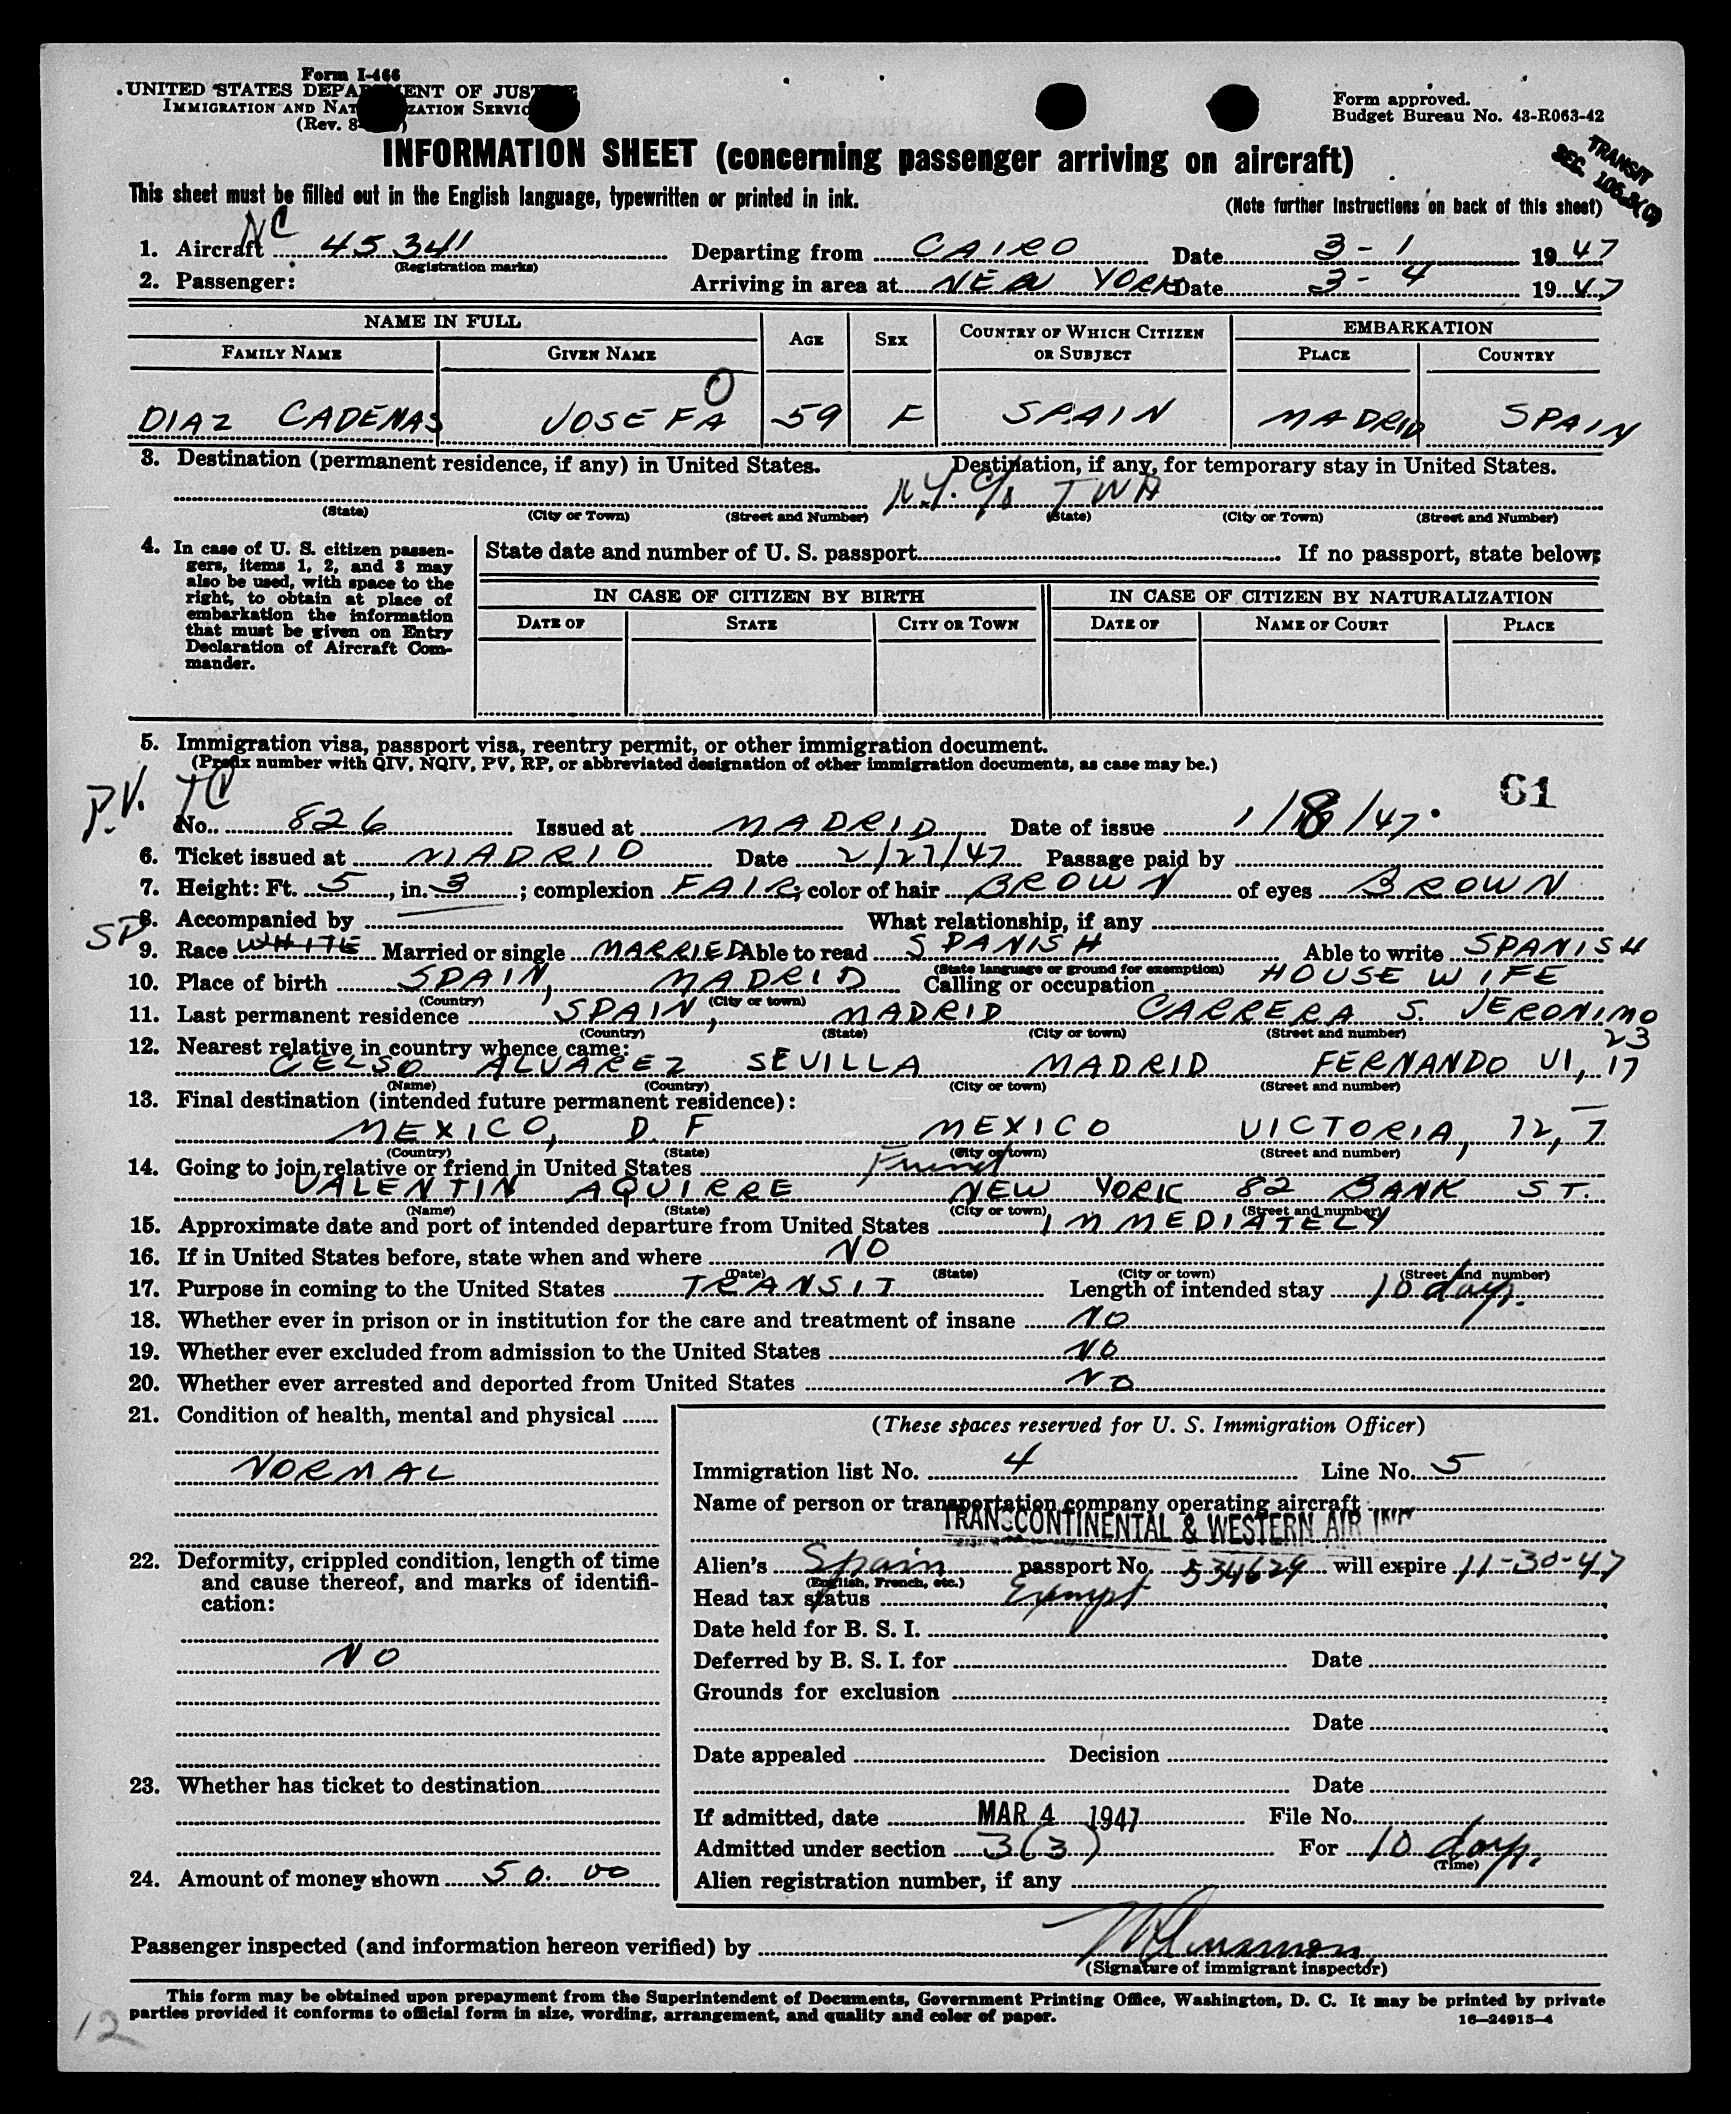 Form I-466
UNITED STATES DEPARTMENT OF JUSTICE
IMMIGRATION AND NATURALIZATION SERVICE
(Rev. 8-
Form approved.
Budget Bureau No. 43-R063-42
TRANSIT
SEC. 106.3(c)
INFORMATION SHEET (concerning passenger arriving on aircraft)
This sheet must be filled out in the English language, typewritten or printed in ink.
(Note further instructions on back of this sheet)
1. Aircraft NC 45341 Departing from CAIRO Date 3-1 1947
(Registration marks)
2. Passenger: Arriving in area at NEW YORK Date 3-4 1947
NAME IN FULL AGE SEX COUNTRY OF WHICH CITIZEN OR SUBJECT EMBARKATION
FAMILY NAME GIVEN NAME PLACE COUNTRY
O
DIAZ CADENAS JOSEFA 59 F SPAIN MADRID SPAIN
3. Destination (permanent residence, if any) in United States. Destination, if any, for temporary stay in United States.
N.Y. c/o TWA
(State) (City or Town) (Street and Number) (State) (City or Town) (Street and Number)
4. In case of U. S. citizen passen-
gers, items 1, 2, and 3 may
also be used, with space to the
right, to obtain at place of
embarkation the information
that must be given on Entry
Declaration of Aircraft Com-
mander.
State date and number of U. S. passport If no passport, state below:
IN CASE OF CITIZEN BY BIRTH IN CASE OF CITIZEN BY NATURALIZATION
DATE OF STATE CITY OR TOWN DATE OF NAME OF COURT PLACE
5. Immigration visa, passport visa, reentry permit, or other immigration document.
(Prefix number with QIV, NQIV, PV, RP, or abbreviated designation of other immigration documents, as case may be.)
61
P.V. TC
No. 826 Issued at MADRID Date of issue 1/18/47
6. Ticket issued at MADRID Date 2/27/47 Passage paid by
7. Height: Ft. 5, in. 3; complexion FAIR; color of hair BROWN of eyes BROWN
8. Accompanied by What relationship, if any
SP
9. Race WHITE Married or single MARRIED Able to read SPANISH Able to write SPANISH
(State language or ground for exemption)
10. Place of birth SPAIN, MADRID Calling or occupation HOUSE WIFE
(Country) (City or town)
11. Last permanent residence SPAIN, MADRID CARRERA S. JERONIMO 23
(Country) (State) (City or town) (Street and number)
12. Nearest relative in country whence came:
CELSO ALVAREZ SEVILLA MADRID FERNANDO VI, 17
(Name) (Country) (City or town) (Street and number)
13. Final destination (intended future permanent residence):
MEXICO, D. F MEXICO VICTORIA, 72, 7
(Country) (State) (City or town) (Street and number)
14. Going to join relative or friend in United States Friend
VALENTIN AQUIRRE NEW YORK 82 BANK ST.
(Name) (State) (City or town) (Street and number)
15. Approximate date and port of intended departure from United States IMMEDIATELY
16. If in United States before, state when and where NO
(Date) (State) (City or town) (Street and number)
17. Purpose in coming to the United States TRANSIT Length of intended stay 10 days.
18. Whether ever in prison or in institution for the care and treatment of insane NO
19. Whether ever excluded from admission to the United States NO
20. Whether ever arrested and deported from United States NO
21. Condition of health, mental and physical
NORMAL
22. Deformity, crippled condition, length of time
and cause thereof, and marks of identifi-
cation:
NO
23. Whether has ticket to destination
24. Amount of money shown 50.00
(These spaces reserved for U. S. Immigration Officer)
Immigration list No. 4 Line No. 5
Name of person or transportation company operating aircraft
TRANSCONTINENTAL & WESTERN AIR INC
Alien's Spain passport No. 534629 will expire 11-30-47
(English, French, etc.)
Head tax status Exempt
Date held for B. S. I.
Deferred by B. S. I. for Date
Grounds for exclusion
Date
Date appealed Decision
Date
If admitted, date MAR 4 1947 File No.
Admitted under section 3(3) For 10 days.
(Time)
Alien registration number, if any
Passenger inspected (and information hereon verified) by
(Signature of immigrant inspector)
This form may be obtained upon prepayment from the Superintendent of Documents, Government Printing Office, Washington, D. C. It may be printed by private
parties provided it conforms to official form in size, wording, arrangement, and quality and color of paper.
16—24915-4
12